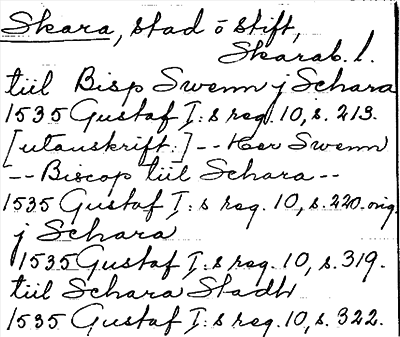 Skara, stad o stift,
Skarab. l.
tiil Bisp Swenn j Schara
1535 Gustaf I:s reg. 10, s. 213.
[utanskrift:] -- Her Swenn
-- Biscop tiil Schara --
1535 Gustaf I:s reg. 10, s. 220. orig.
j Schara
1535 Gustaf I:s reg. 10, s. 319.
tiil Schara Stadh
1535 Gustaf I:s reg. 10, s. 322.